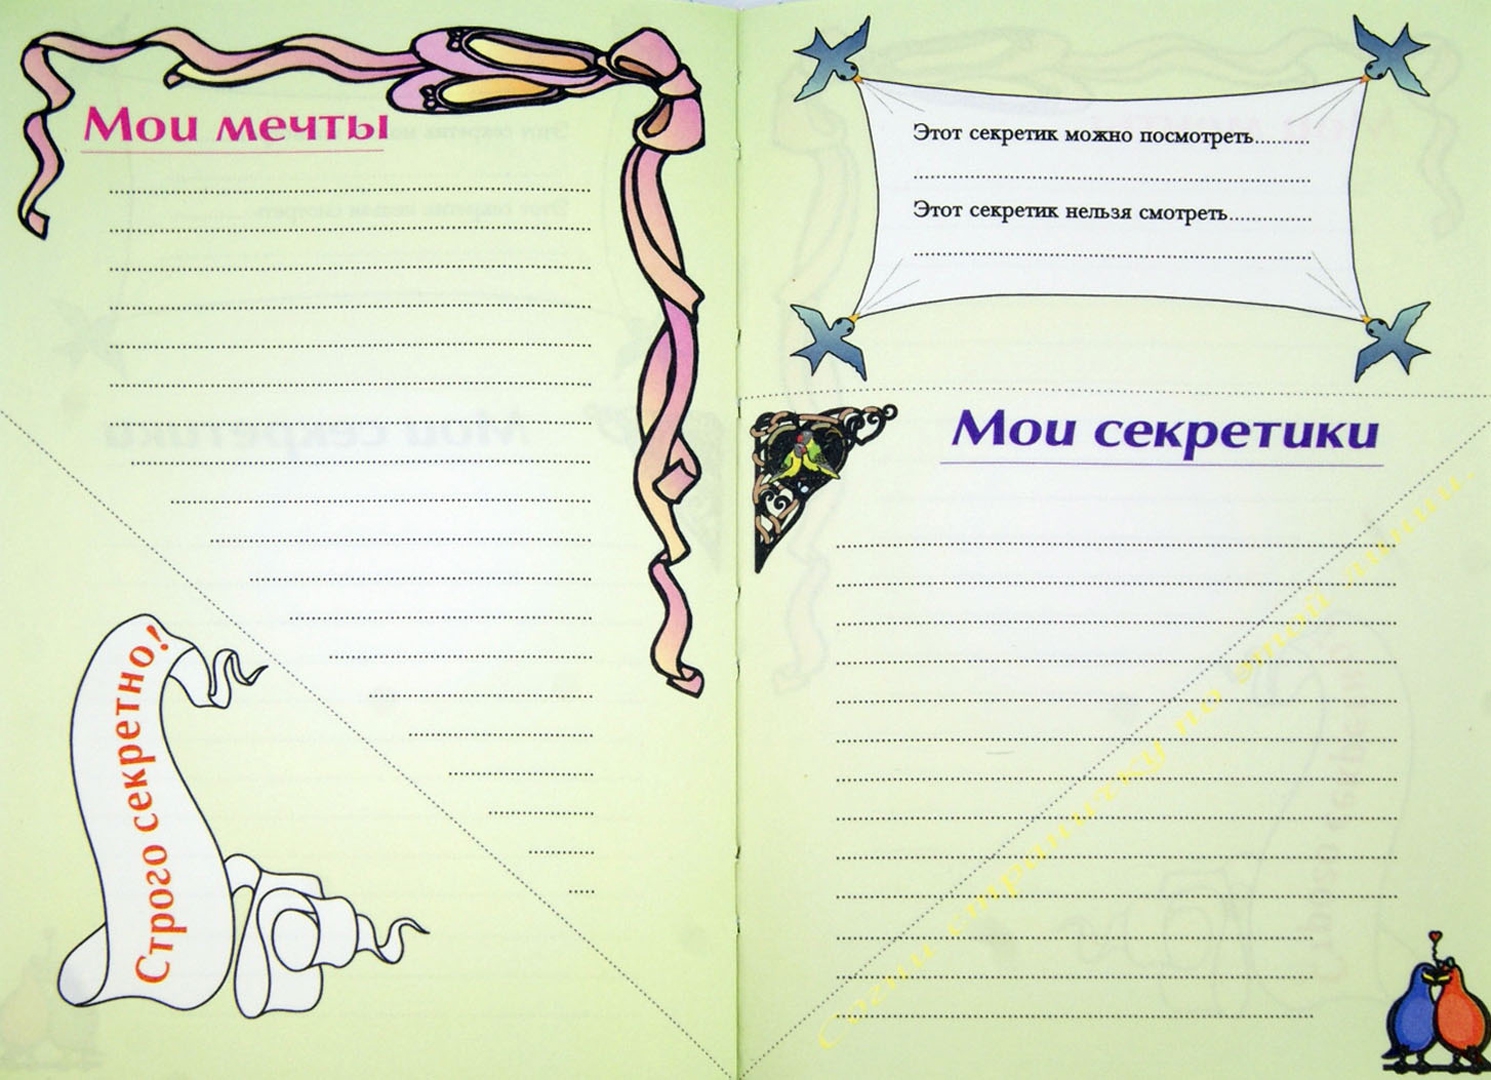 Мои мечты
Строго секретно!
Этот секретик можно посмотреть..........
Этот секретик нельзя смотреть...............
Мои секретики
Согни страничку по этой линии.